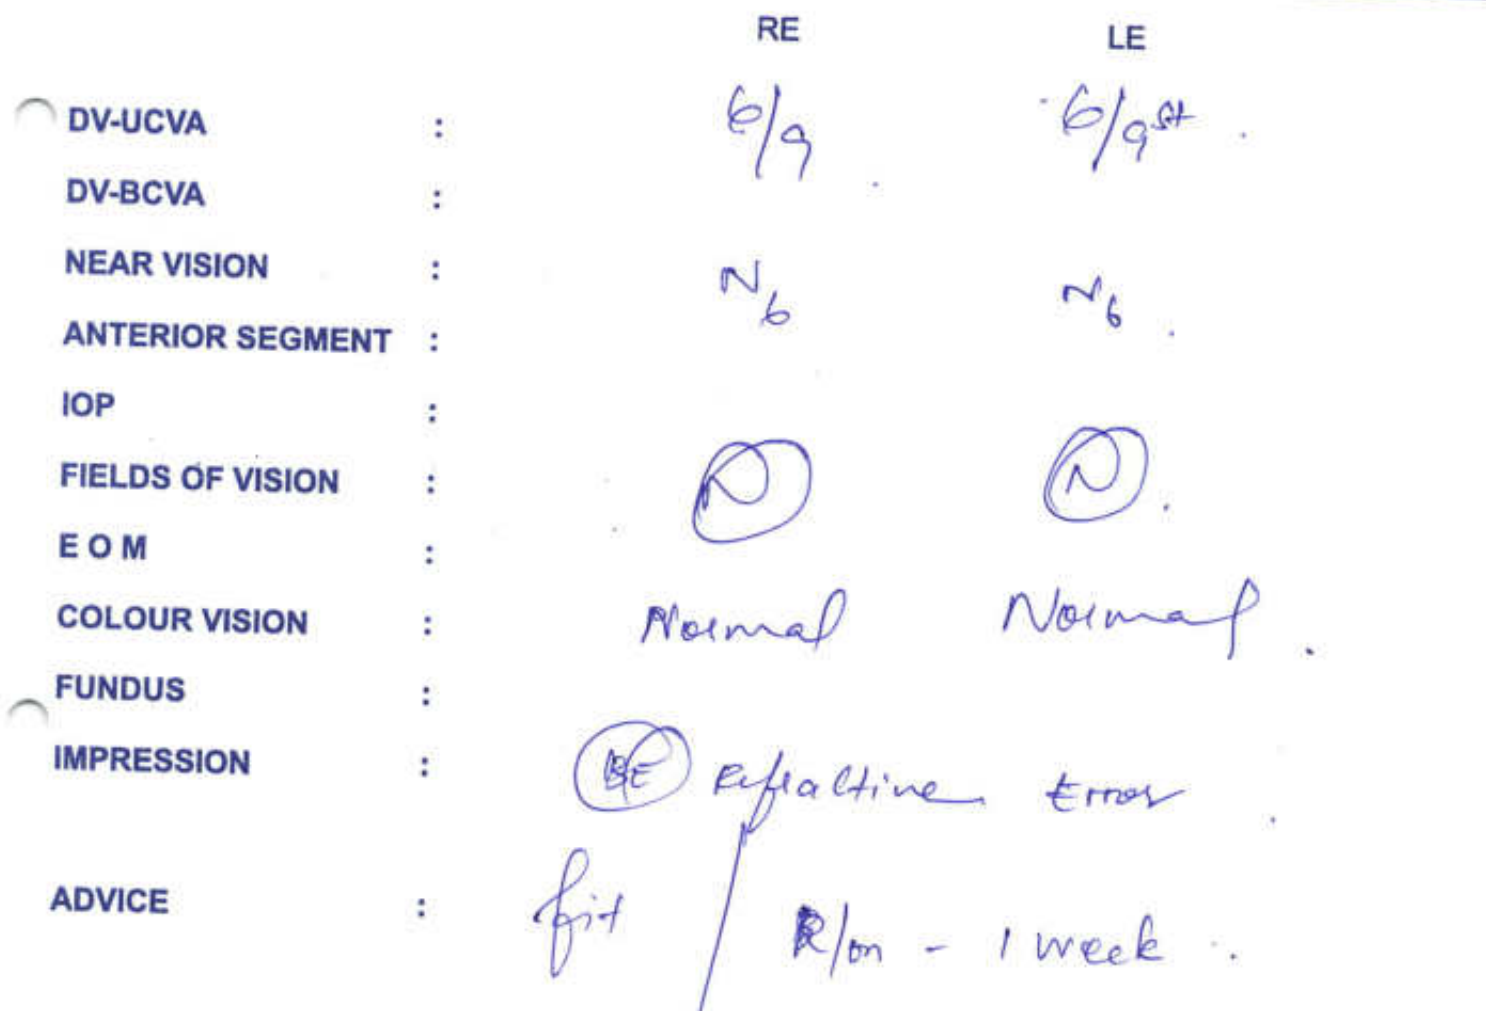 RE LE
DV-UCVA : 6/9 6/9st
DV-BCVA :
NEAR VISION : N6 N6
ANTERIOR SEGMENT :
IOP :
FIELDS OF VISION : N N
E O M :
COLOUR VISION : Normal Normal
FUNDUS :
IMPRESSION : BE Refractive Error
ADVICE : fit / R/on - 1 week